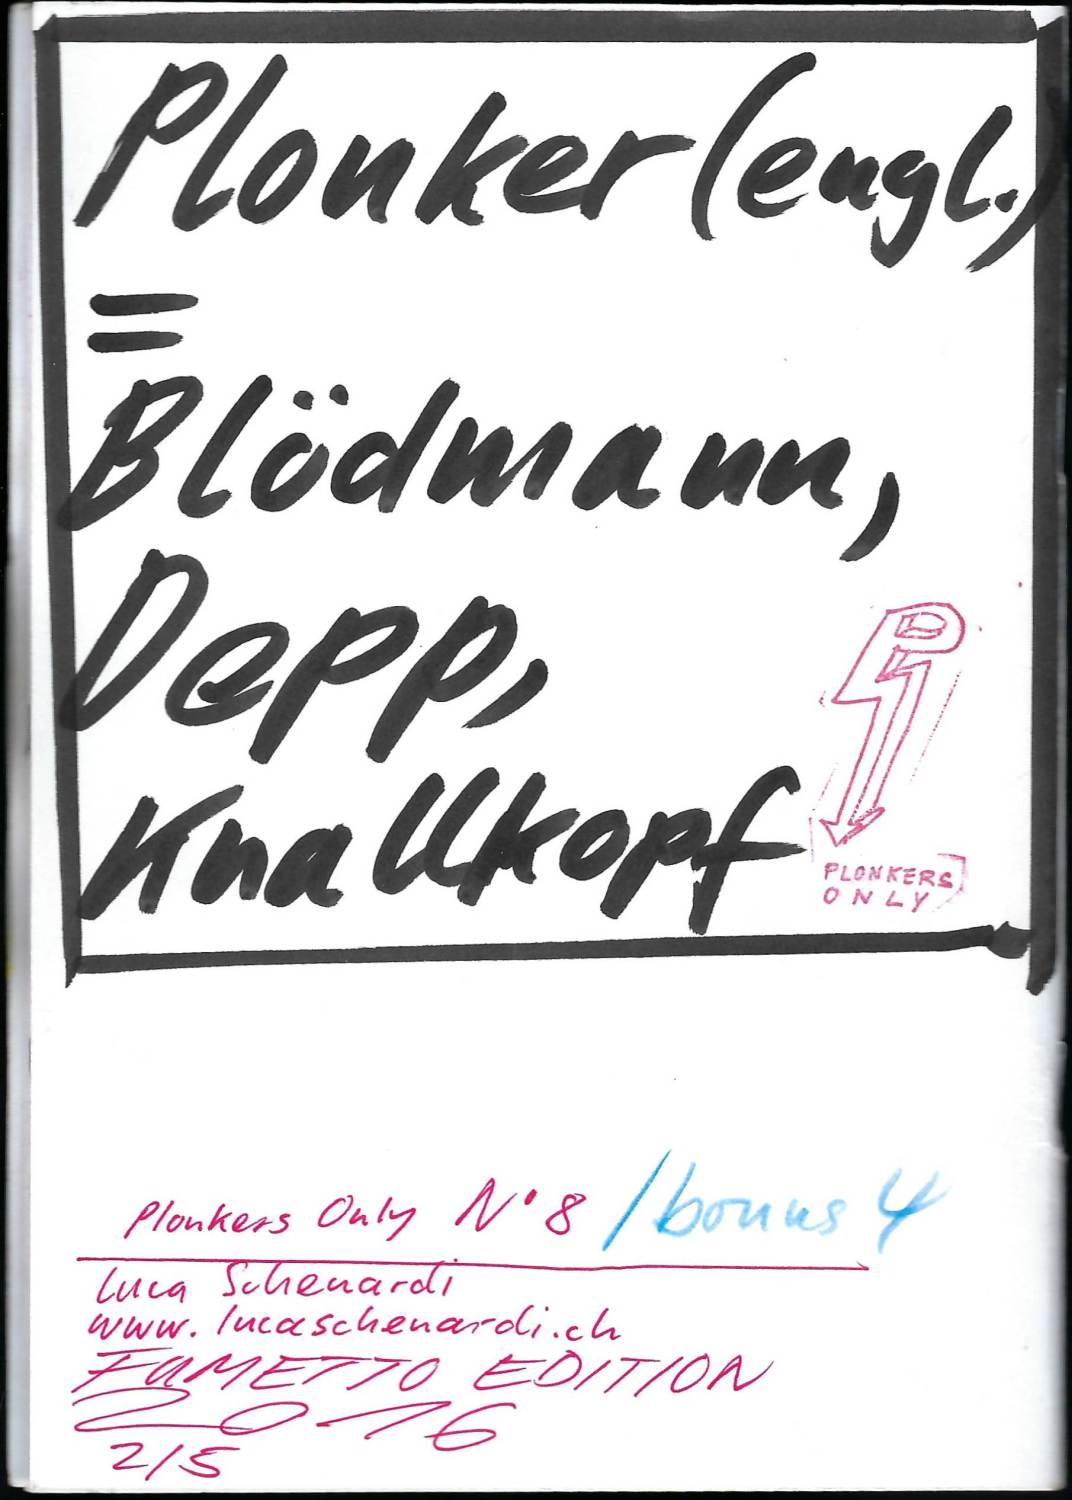 Plonker (engl.)
=
Blödmann,
Depp,
Knallkopf
PLONKERS
ONLY
Plonkers Only N° 8 /bonus 4
Luca Schenardi
www.lucaschenardi.ch
FUMETTO EDITION
2016
2/5